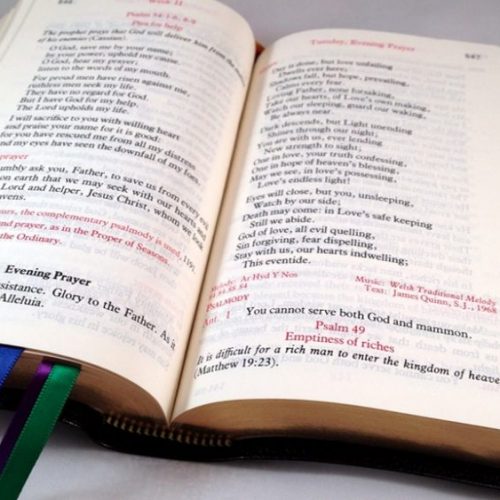 Week II
Psalm 54:1-6, 8-9
Plea for help
The prophet prays that God will deliver him from the
of his enemies (Cassian).
O God, save me by your name;
by your power, uphold my cause.
O God, hear my prayer;
listen to the words of my mouth.
For proud men have risen against me,
ruthless men seek my life.
They have no regard for God.
But I have God for my help.
The Lord upholds my life.
I will sacrifice to you with willing heart
and praise your name for it is good:
for you have rescued me from all my distress
and my eyes have seen the downfall of my foes.
prayer
humbly ask you, Father, to save us from every evil
on earth that we may seek with our hearts
Lord and helper, Jesus Christ, whom we look
the complementary psalmody is used, 1191.
and prayer, as in the Proper of Seasons
the Ordinary.
Evening Prayer
Glory to the Father. As it
Alleluia.
Tuesday, Evening Prayer
Day is done, but love unfailing
Dwells ever here;
Shadows fall, but hope, prevailing,
Calms every fear.
Loving Father, none forsaking,
Take our hearts, of Love's own making,
Watch our sleeping, guard our waking,
Be always near.
Dark descends, but Light unending
Shines through our night;
You are with us, ever lending
New strength to sight;
One in love, your truth confessing,
One in hope of heaven's blessing,
May we see, in love's possessing,
Love's endless light!
Eyes will close, but you, unsleeping,
Watch by our side;
Death may come: in Love's safe keeping
Still we abide.
God of love, all evil quelling,
Sin forgiving, fear dispelling,
Stay with us, our hearts indwelling;
This eventide.
Melody: Ar Hyd Y Nos
84.84.88.84
Music: Welsh Traditional Melody
Text: James Quinn, S.J., 1968
PSALMODY
Ant. 1 You cannot serve both God and mammon.
Psalm 49
Emptiness of riches
It is difficult for a rich man to enter the kingdom of heave
(Matthew 19:23).